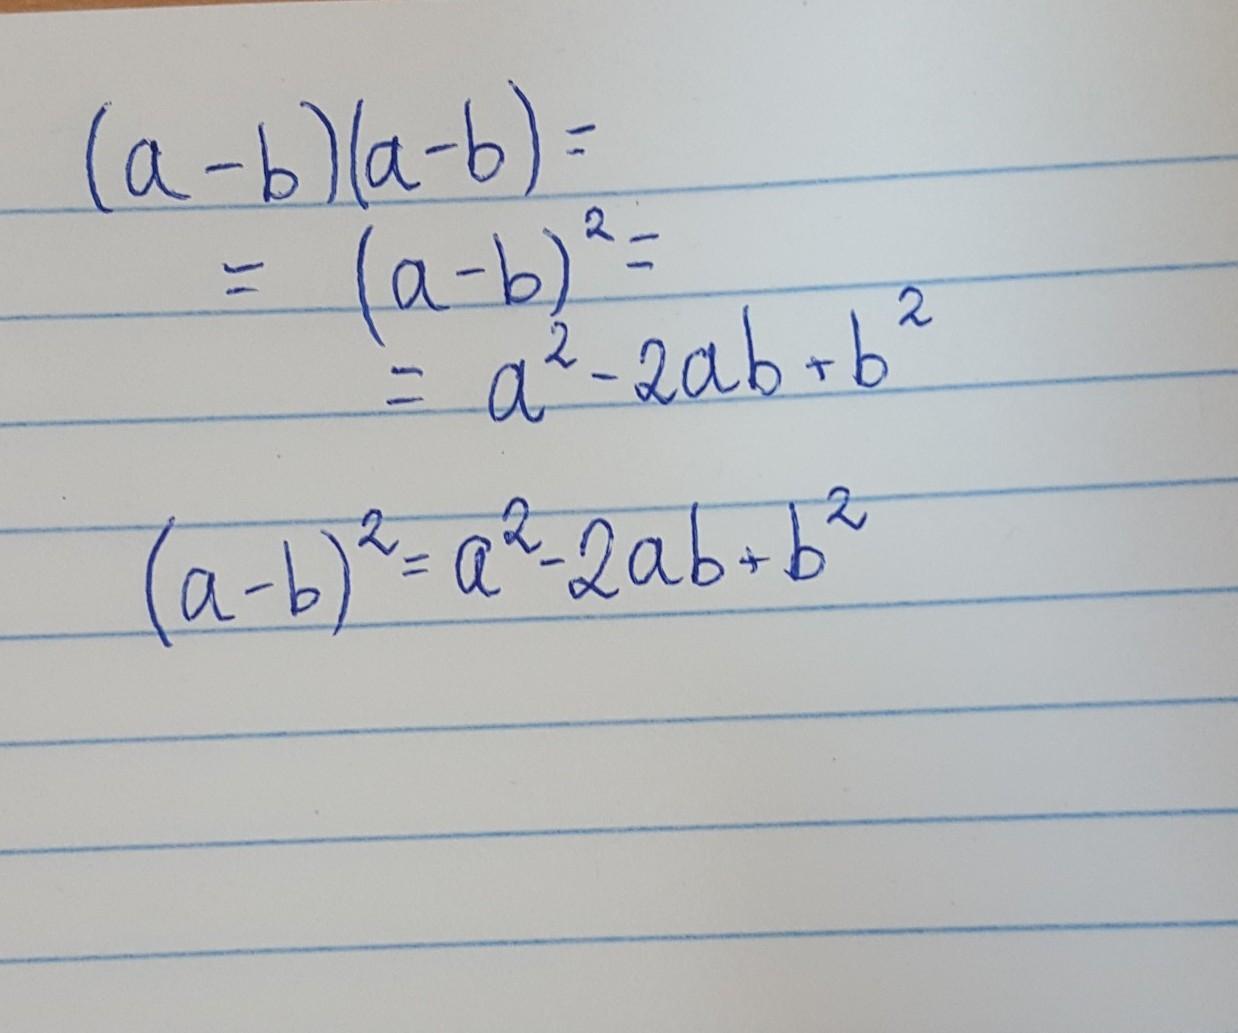 (a-b)(a-b)=
= (a-b)²=
= a²-2ab+b²
(a-b)²=a²-2ab+b²